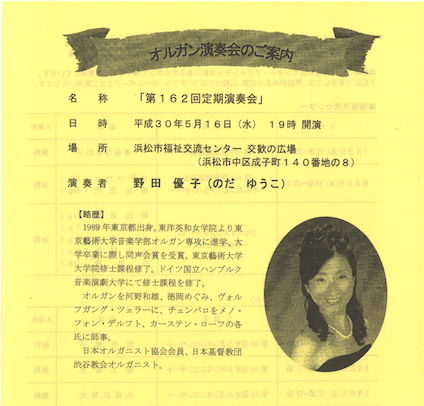 オルガン演奏会のご案内
名 称 「第162回定期演奏会」
日 時 平成30年5月16日（水） 19時 開演
場 所 浜松市福祉交流センター 交歓の広場
（浜松市中区成子町140番地の8）
演 奏 者 野 田 優 子（のだ ゆうこ）
【略歴】
1989年東京都出身。東洋英和女学院より東
京藝術大学音楽学部オルガン専攻に進学、大
学卒業に際し同声会賞を受賞。東京藝術大学
大学院修士課程修了。ドイツ国立ハンブルク
音楽演劇大学にて修士課程を修了。
オルガンを河野和雄、徳岡めぐみ、ヴォル
フガング・ツェラーに、チェンバロをメノ・
フォン・デルフト、カーステン・ローフの各
氏に師事。
日本オルガニスト協会会員、日本基督教団
渋谷教会オルガニスト。